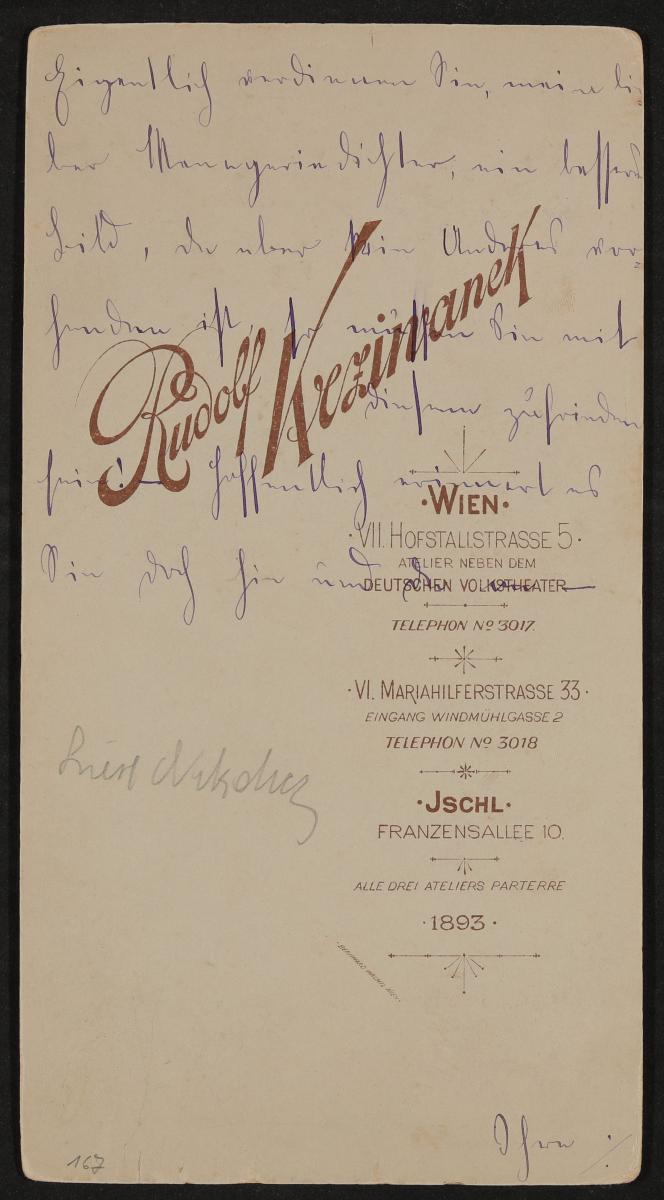 Eigentlich verdienen Sie, mein lie-
ber Menageriedichter, ein besseres
Bild, da aber kein Anderes vor-
handen ist, so müssen Sie mit
diesem zufrieden
sein! – Hoffentlich erinnert es
Sie doch hie und da an –
Rudolf Krziwanek
·WIEN·
·VII. HOFSTALLSTRASSE 5·
ATELIER NEBEN DEM
DEUTSCHEN VOLKSTHEATER
TELEPHON No 3017.
·VI. MARIAHILFERSTRASSE 33·
EINGANG WINDMÜHLGASSE 2
TELEPHON No 3018
·JSCHL·
FRANZENSALLEE 10.
ALLE DREI ATELIERS PARTERRE
·1893·
Ihre ./.
167